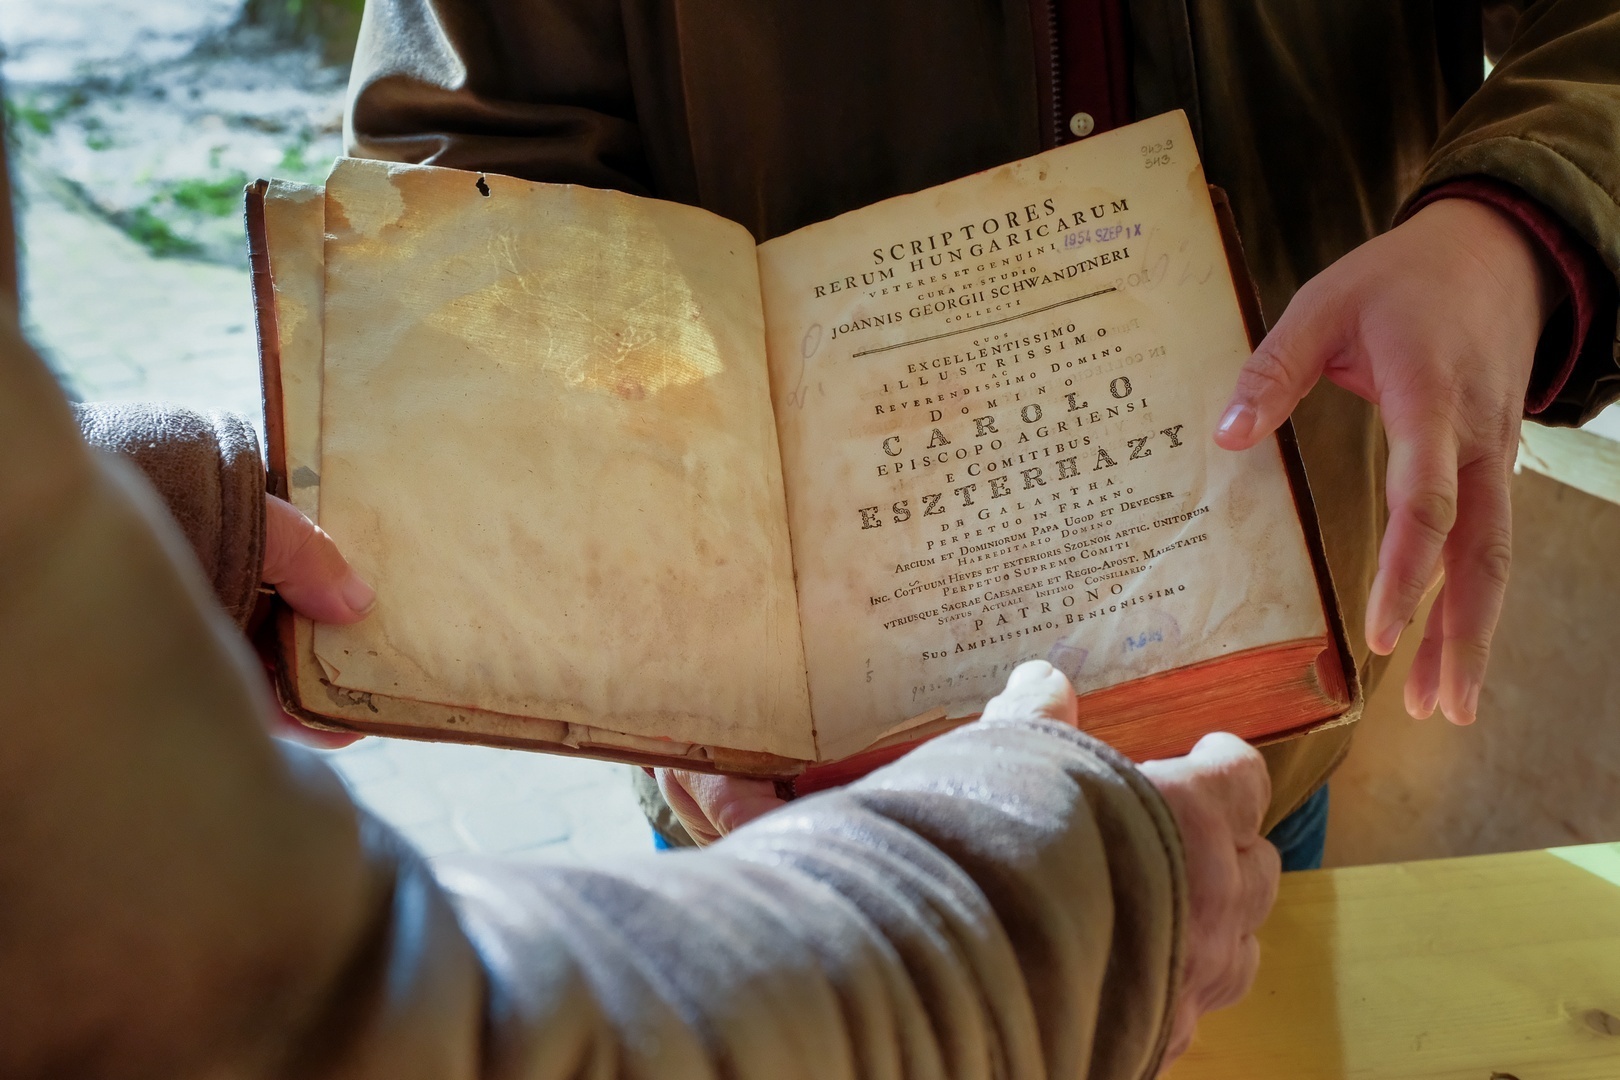 943.9
943
SCRIPTORES
RERUM HUNGARICARUM
VETERES ET GENUINI,
1954 SZEP 1 X
CURA ET STUDIO
JOANNIS GEORGII SCHWANDTNERI
COLLECTI
QUOS
EXCELLENTISSIMO
ILLUSTRISSIMO
AC
REVERENDISSIMO DOMINO
DOMINO
CAROLO
EPISCOPO AGRIENSI
E COMITIBUS
ESZTERHÁZY
DE GALANTHA
PERPETUO IN FRAKNO
ARCIUM ET DOMINIORUM PAPA UGOD ET DEVECSER
HAEREDITARIO DOMINO
INC. COTTUUM HEVES ET EXTERIORIS SZOLNOK ARTIC. UNITORUM
PERPETUO SUPREMO COMITI
VTRIUSQUE SACRAE CAESAREAE ET REGIO-APOST. MAIESTATIS
STATUS ACTUALI INTIMO CONSILIARIO,
PATRONO
SUO AMPLISSIMO, BENIGNISSIMO
1
5